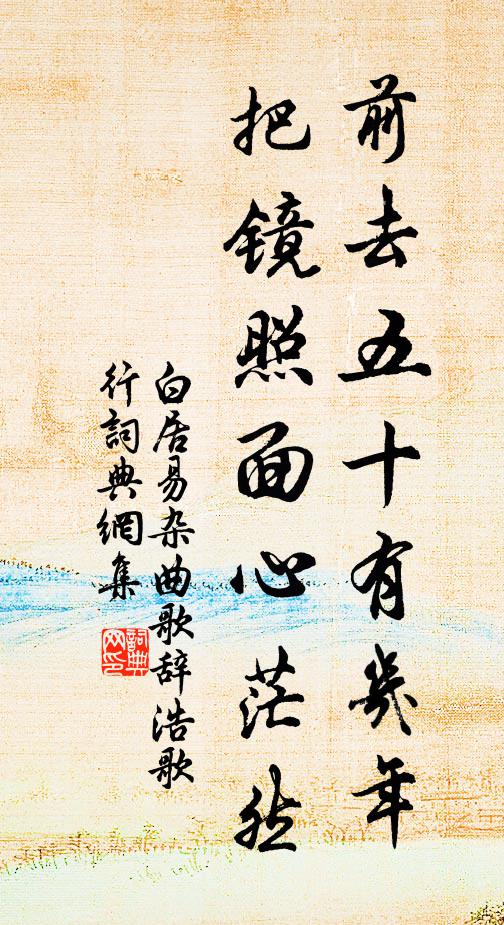 前去五十有幾年
把镜照面心茫然
白居易杂曲歌辞浩歌
行詞典網集
詞典
网印